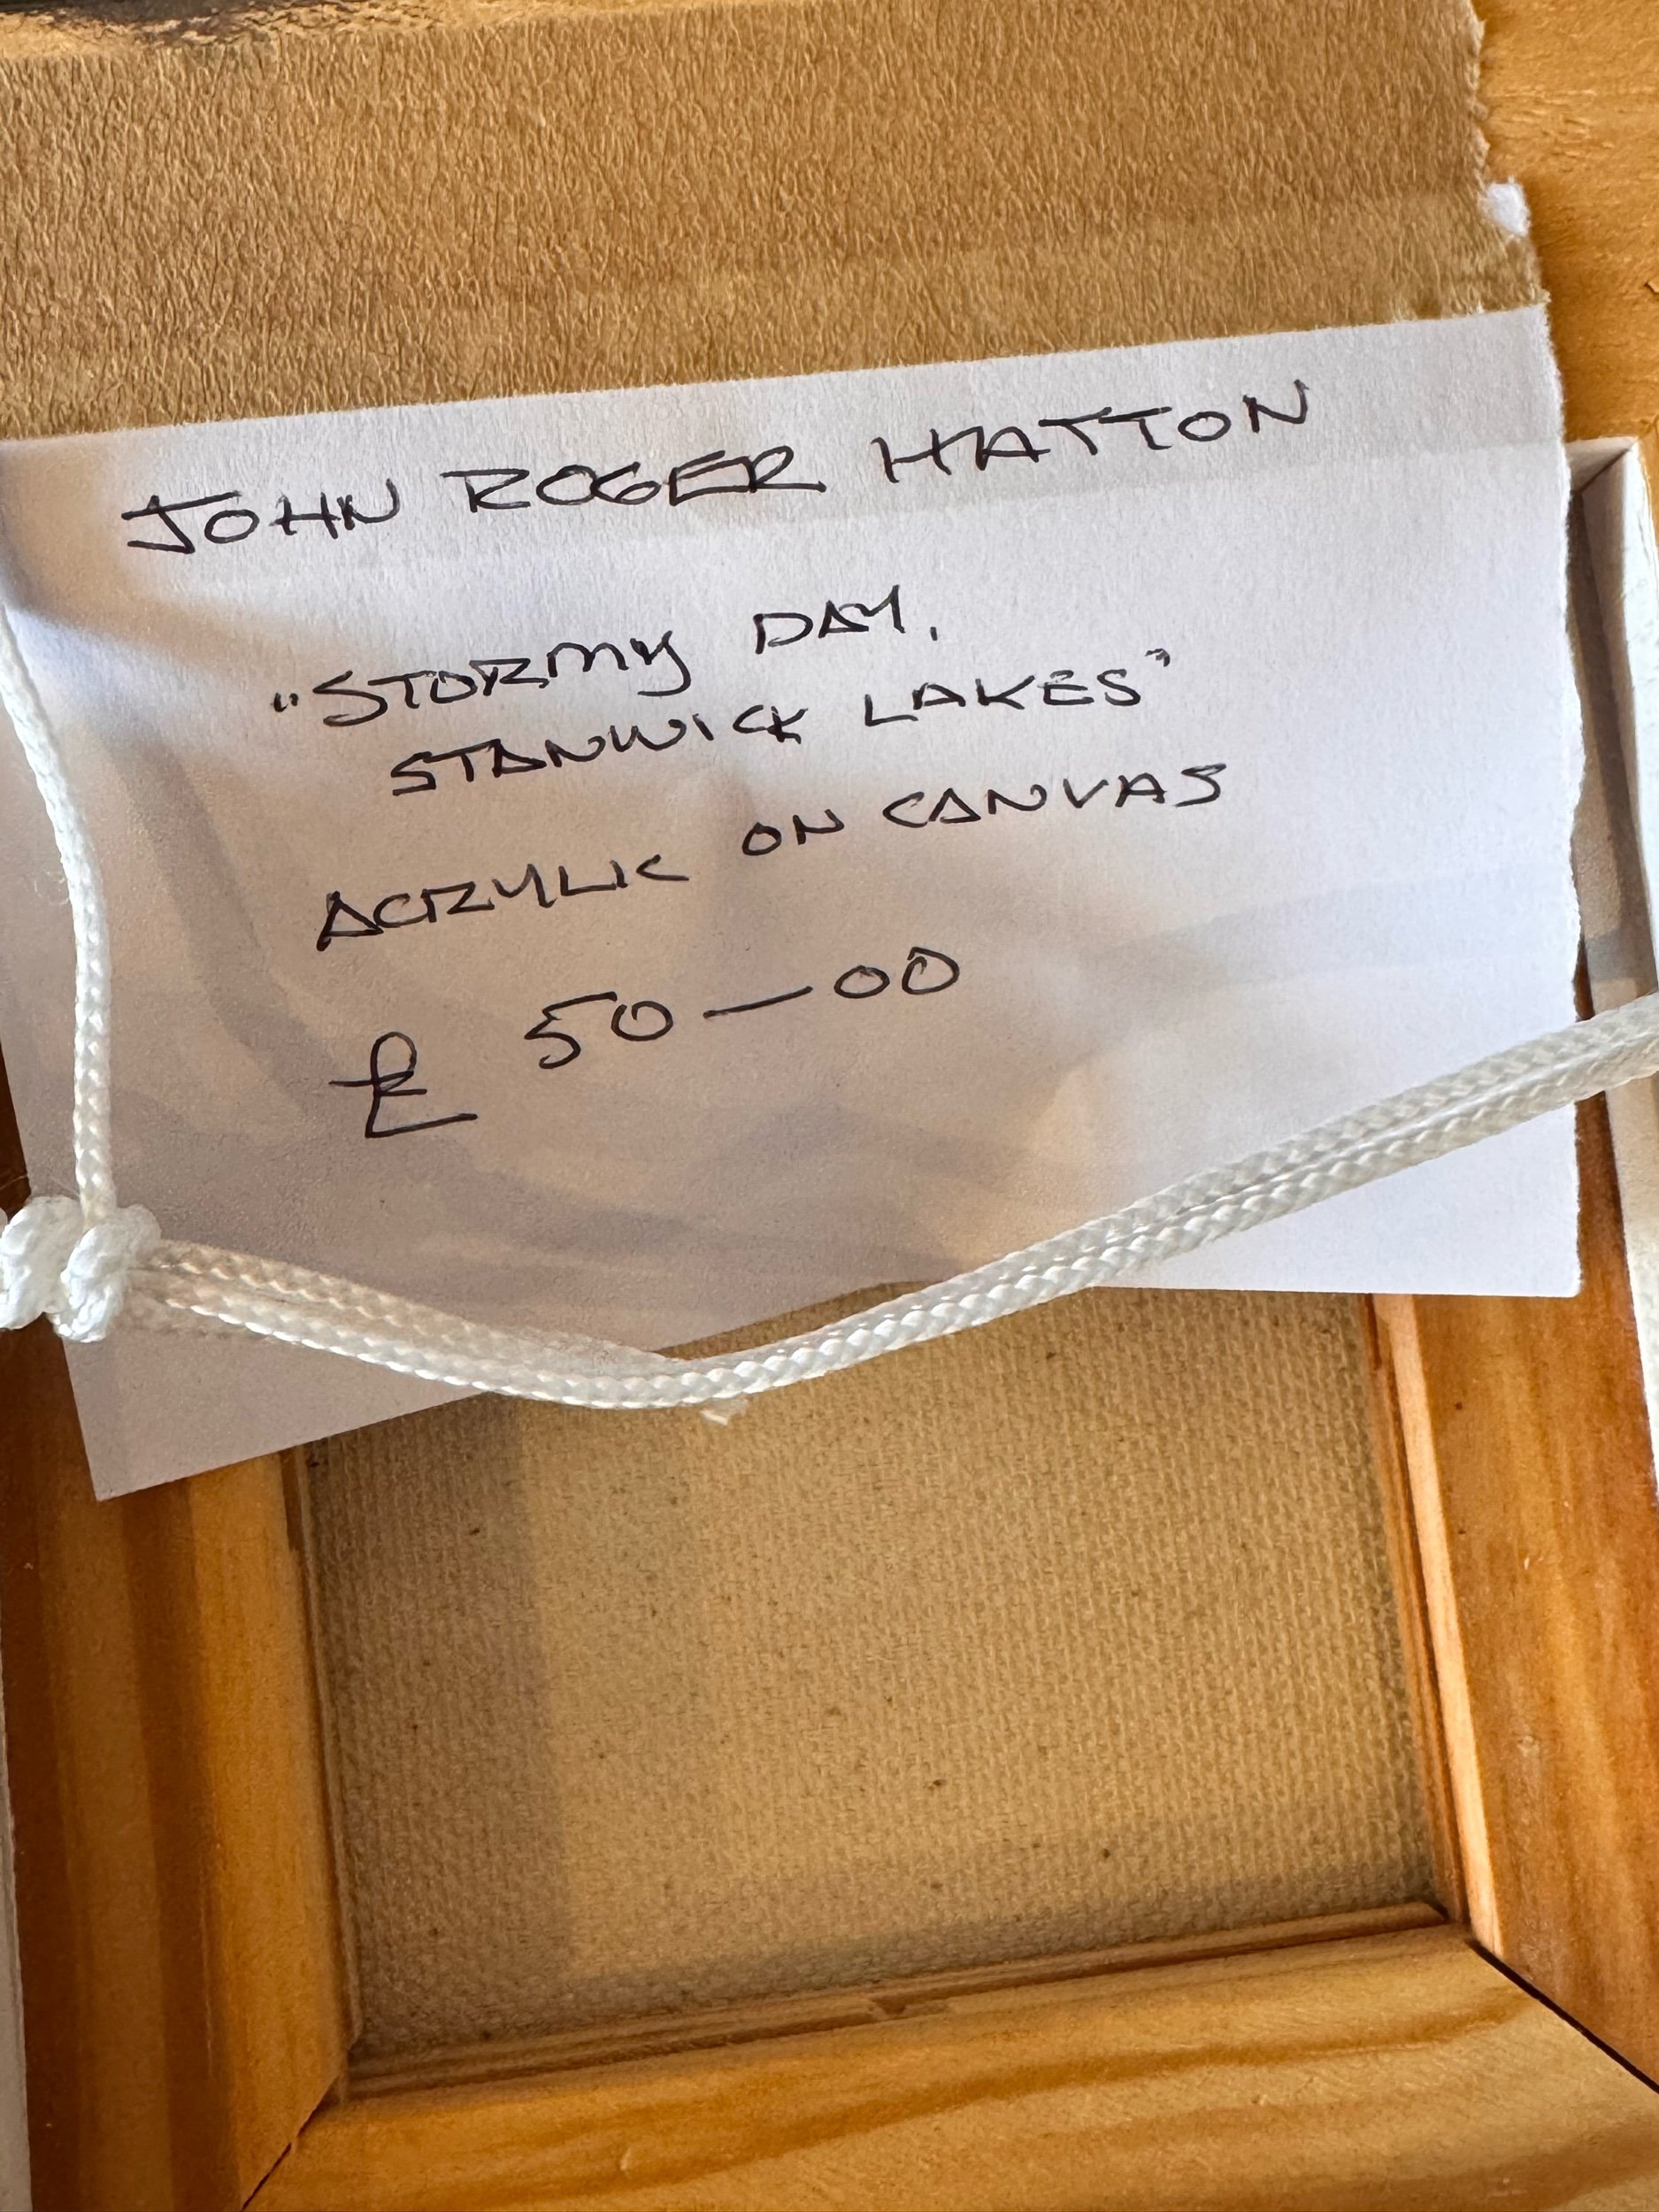 JOHN ROGER HATTON
"STORMY DAY,
STANWICK LAKES"
ACRYLIC ON CANVAS
£ 50—00